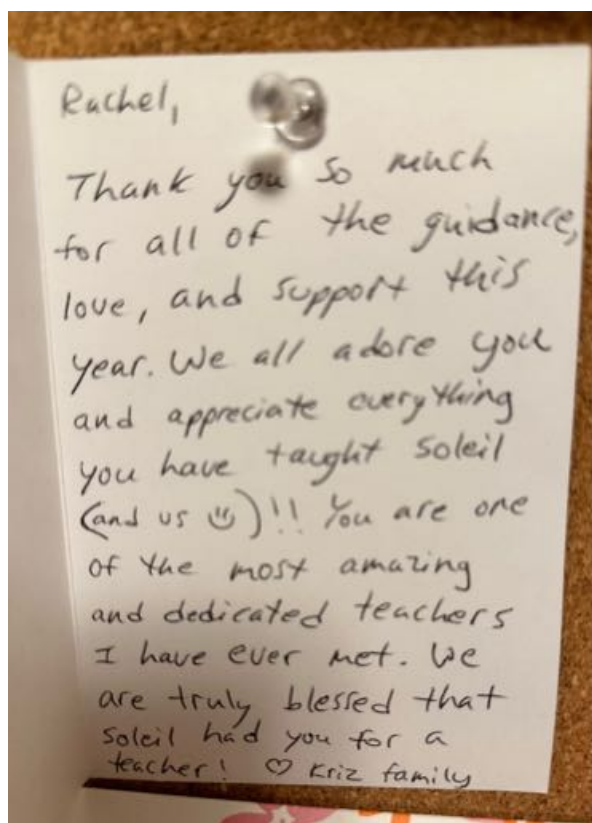 Rachel,
Thank you so much
for all of the guidance,
love, and support this
year. We all adore you
and appreciate everything
you have taught Soleil
(and us ☺)!! You are one
of the most amazing
and dedicated teachers
I have ever met. We
are truly blessed that
Soleil had you for a
teacher! ♡ Kriz family